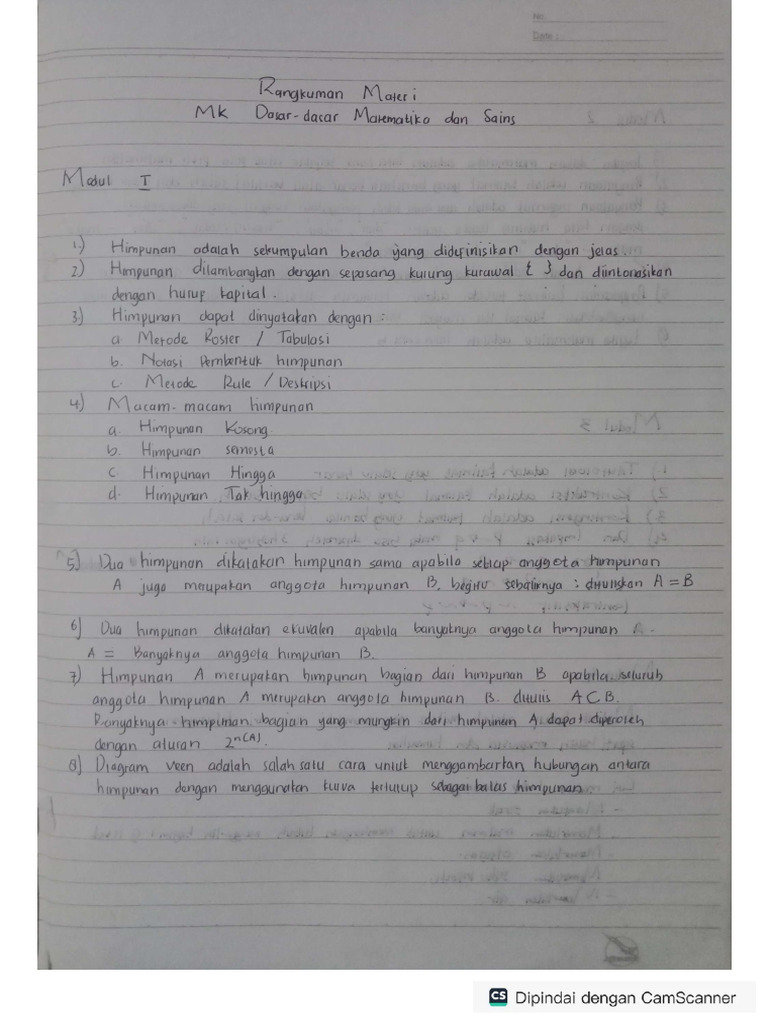 No.
Date:
Rangkuman Materi
MK Dasar-dasar Matematika dan Sains
Modul I
1.) Himpunan adalah sekumpulan benda yang didefinisikan dengan jelas.
2) Himpunan dilambangkan dengan sepasang kurung kurawal { } dan diintonasikan
dengan huruf kapital.
3.) Himpunan dapat dinyatakan dengan :
a. Metode Roster / Tabulasi
b. Notasi Pembentuk himpunan
c. Metode Rule / Deskripsi
4) Macam-macam himpunan
a. Himpunan Kosong
b. Himpunan semesta
c Himpunan Hingga
d. Himpunan Tak hingga
5.) Dua himpunan dikatakan himpunan sama apabila setiap anggota himpunan
A juga merupakan anggota himpunan B, begitu sebaliknya : dituliskan A = B
6) Dua himpunan dikatakan ekuvalen apabila banyaknya anggota himpunan
A = Banyaknya anggota himpunan B.
7) Himpunan A merupakan himpunan bagian dari himpunan B apabila seluruh
anggota himpunan A merupakan anggota himpunan B. ditulis A C B.
Banyaknya himpunan bagian yang mungkin dari himpunan A dapat diperoleh
dengan aturan 2^n(A).
8) Diagram veen adalah salah satu cara untuk menggambarkan hubungan antara
himpunan dengan menggunakan kurva tertutup sebagai batas himpunan
CS Dipindai dengan CamScanner